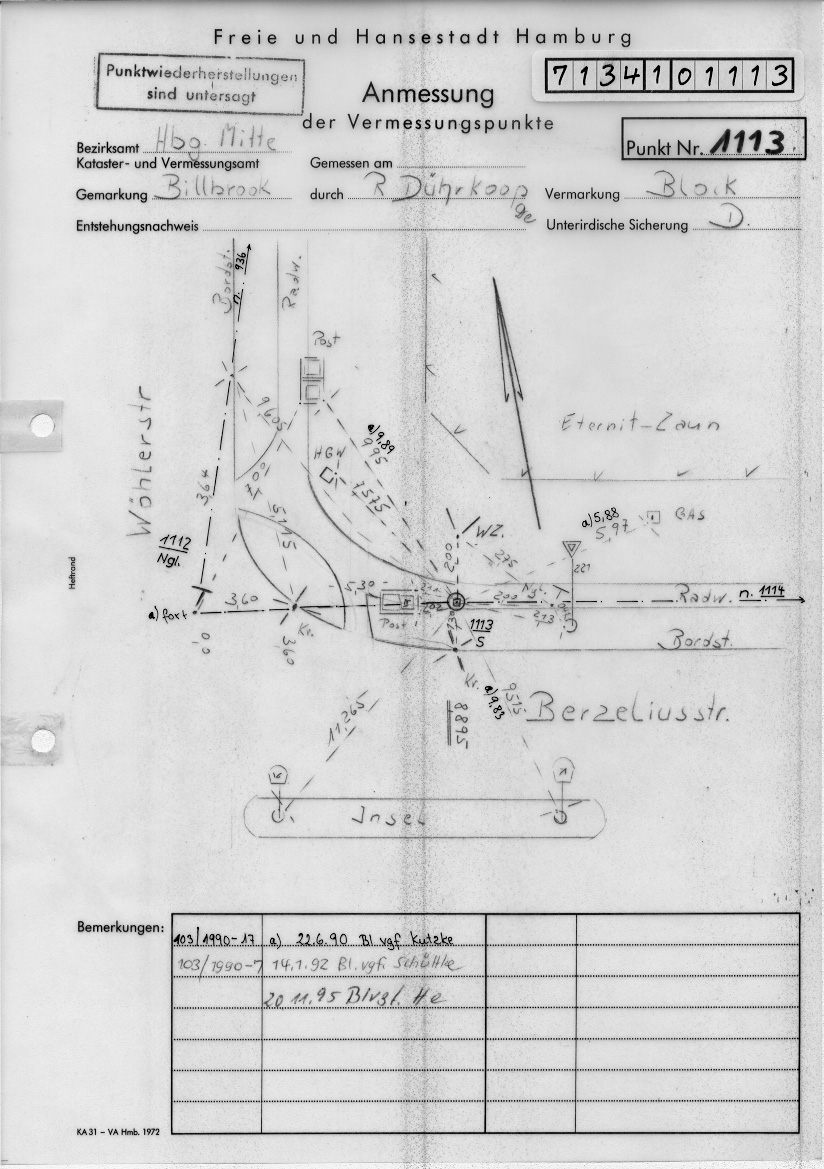 Freie und Hansestadt Hamburg
Punktwiederherstellungen
sind untersagt
7134101113
Anmessung
der Vermessungspunkte
Punkt Nr. 1113
Bezirksamt Hbg. Mitte
Kataster- und Vermessungsamt
Gemessen am
Gemarkung Billbrook
durch R Dührkoop
Vermarkung Block
Entstehungsnachweis
Unterirdische Sicherung D.
Bordst.
n. 936
Radw.
Post
Wöhlerstr
9,605
a) 9,89
9,95
HGW
7,575
Eternit-Zaun
3,64
5,775
1112
Ngl.
a) 5,88
5,97
GAS
WZ.
2,00
275
221
a) fort
3,60
5,30
Ngl.
2,00
Radw. n. 1114
0,0
3,60
Kr.
Post
1113
S
Bordst.
Kr.
a) 9,83
9,575
8895
11,265
Berzeliusstr.
Insel
Heftrand
Bemerkungen:
103/1990-17 a) 22.6.90 Bl vgf Kutzke
103/1990-7 14.1.92 Bl. vgf. Schüttke
20 11.95 Blvgf. He
KA 31 – VA Hmb. 1972